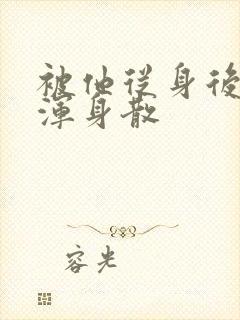 被他從身後
渾身散
容光